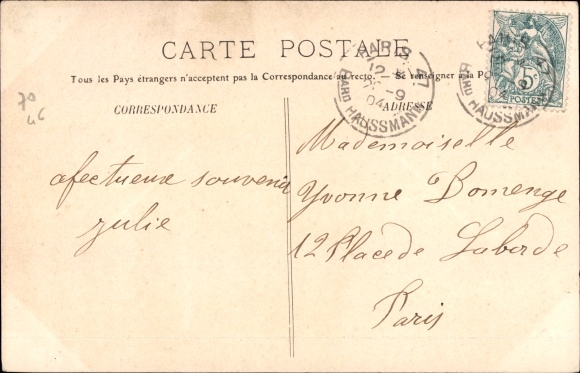 CARTE POSTALE
Tous les Pays étrangers n'acceptent pas la Correspondance au recto. Se renseigner à la
CORRESPONDANCE
ADRESSE
PARIS
12
9
04
BARD HAUSSMANN
PARIS
BARD HAUSSMANN
04
5c
POSTES
70
afectueux souvenir
Julie
Mademoiselle
Yvonne Domenge
12 Place de Laborde
Paris